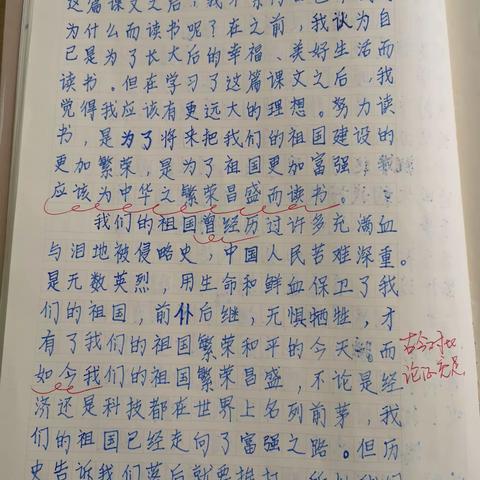 这篇课文之后，我不禁
为什么而读书呢？在之前，我认为自
己是为了长大后的幸福、美好生活而
读书。但在学习了这篇课文之后，我
觉得我应该有更远大的理想。努力读
书，是为了将来把我们的祖国建设的
更加繁荣，是为了祖国更加富强，我
应该为中华之繁荣昌盛而读书。
我们的祖国曾经历过许多充满血
与泪地被侵略史，中国人民苦难深重。
是无数英烈，用生命和鲜血保卫了我
们的祖国，前仆后继，无惧牺牲，才
有了我们的祖国繁荣和平的今天，而
如今我们的祖国繁荣昌盛，不论是经
济还是科技都在世界上名列前茅，我
们的祖国已经走向了富强之路。但历
史告诉我们落后就要挨打，所以我们
古今对比
论证充足